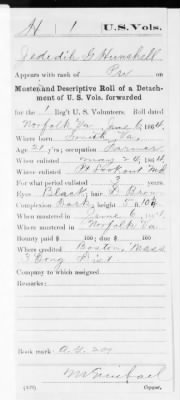 H | 1 | U.S. Vols.
Jedediah G Hunshell
Appears with rank of Pri on
Muster and Descriptive Roll of a Detach-
ment of U. S. Vols. forwarded
for the 1 Reg't U.S. Volunteers. Roll dated
Norfolk Va June 6, 1864.
Where born Smyth Va
Age 21 y'rs; occupation Farmer
When enlisted May 26, 1864.
Where enlisted Pt Lookout Md
For what period enlisted 3 years.
Eyes Black; hair D Brown
Complexion Dark; height 5 ft. 10
When mustered in June 6, 1864.
Where mustered in Norfolk Va
Bounty paid $ 100; due $ 100
Where credited Boston Mass
3 Cong Dist
Company to which assigned
Remarks:
Book mark:
(339) Copyist.